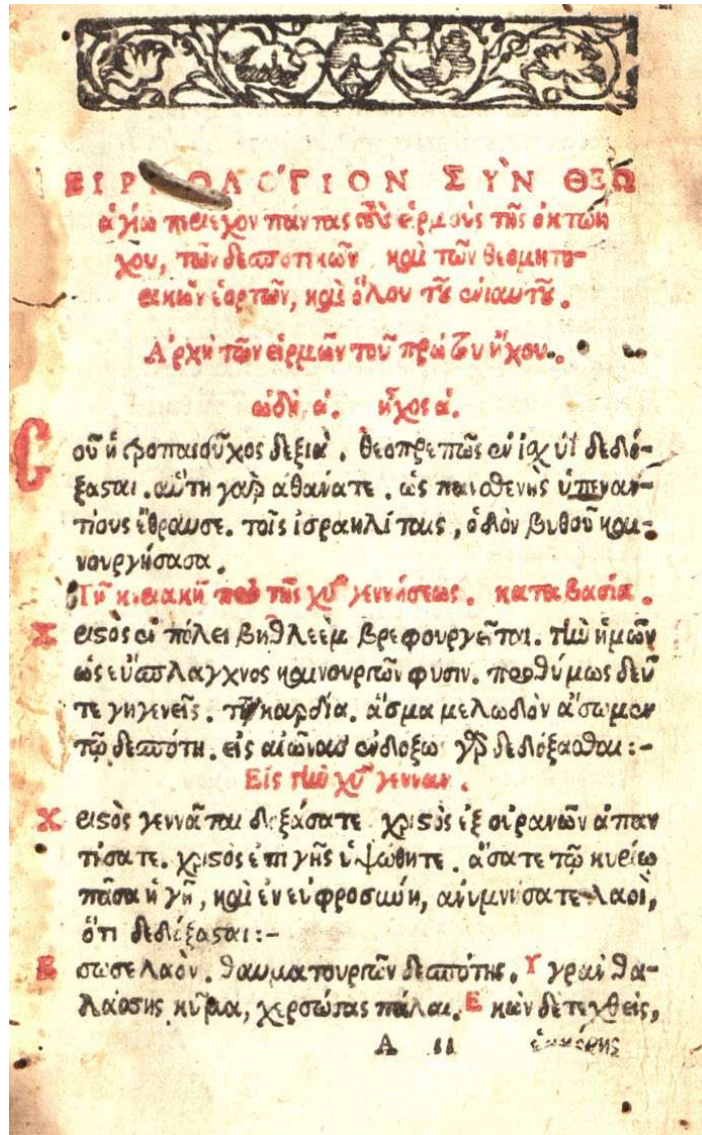 ΕΙΡΜΟΛΟ'ΓΙΟΝ ΣΥ`Ν ΘΕΩ
ἁγίω περιέχον πάντας τοὺς εἱρμοὺς τῆς ὀκτωή
χου, τῶν δεσποτικῶν καὶ τῶν θεομητο-
ρικῶν ἑορτῶν, καὶ ὅλου τοῦ ἐνιαυτοῦ.
Ἀρχὴ τῶν εἱρμῶν τοῦ πρώτου ἤχου.
ὠδὴ α΄. ἦχος α΄.
Σοῦ ἡ τροπαιοῦχος δεξιὰ, θεοπρεπῶς ἐν ἰσχύϊ δεδό-
ξασται. αὕτη γὰρ ἀθάνατε. ὡς πανσθενὴς ὑπεναν-
τίους ἔθραυσε. τοῖς ἰσραηλίταις, ὁδὸν βυθοῦ και-
νουργήσασα.
Τῆ κυριακῆ πρὸ τῆς χῦ γεννήσεως. καταβασία.
Χριστὸς ἐν πόλει βηθλεὲμ βρεφουργεῖται. τὴν ἡμῶν
ὡς εὔσπλαγχνος καινουργῶν φύσιν. προθύμως δεῦ
τε γηγενεῖς. τῆ καρδία. ἄσμα μελωδὸν ἄσωμεν
τῷ δεσπότη. εἰς αἰῶνας ἐνδόξως γὰρ δεδόξασται:-
Εἰς τὴν χῦ γένναν.
Χριστὸς γεννᾶται δοξάσατε χριστὸς ἐξ οὐρανῶν ἀπαν
τήσατε. χριστὸς ἐπὶ γῆς ὑψώθητε. ἄσατε τῷ κυρίω
πᾶσα ἡ γῆ, καὶ ἐν εὐφροσύνη, ἀνυμνήσατε λαοὶ,
ὅτι δεδόξασται:-
Ἔσωσε λαὸν. θαυματουργῶν δεσπότης. Ὑγρὸν θα-
λάσσης κῦμα, χερσώσας πάλαι. Ἑκὼν δὲ τεχθεὶς,
Α ιι ἐκ κόρης